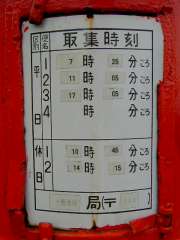 区別 便名 取集時刻
平日 1 7時 25分ごろ
2 11時 05分ごろ
3 17時 05分ごろ
4 時 分ごろ
休日 1 10時 45分ごろ
2 14時 15分ごろ
局(〒 )